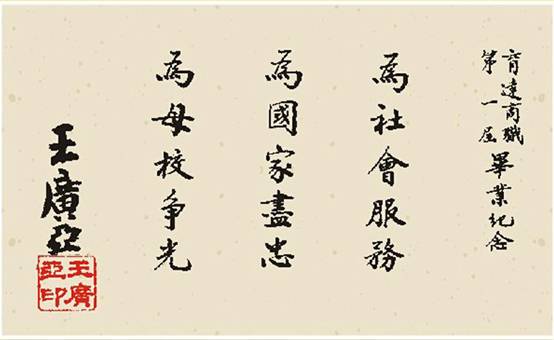 育達商職
第一屆
畢業紀念
為社會服務
為國家盡忠
為母校爭光
王廣亞
王廣
亞印